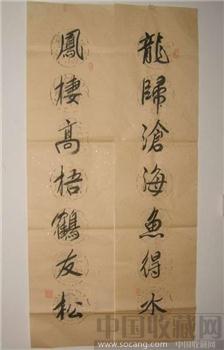 龍歸滄海魚得水
鳳棲高梧鶴友松
中国收藏网
www.socang.com